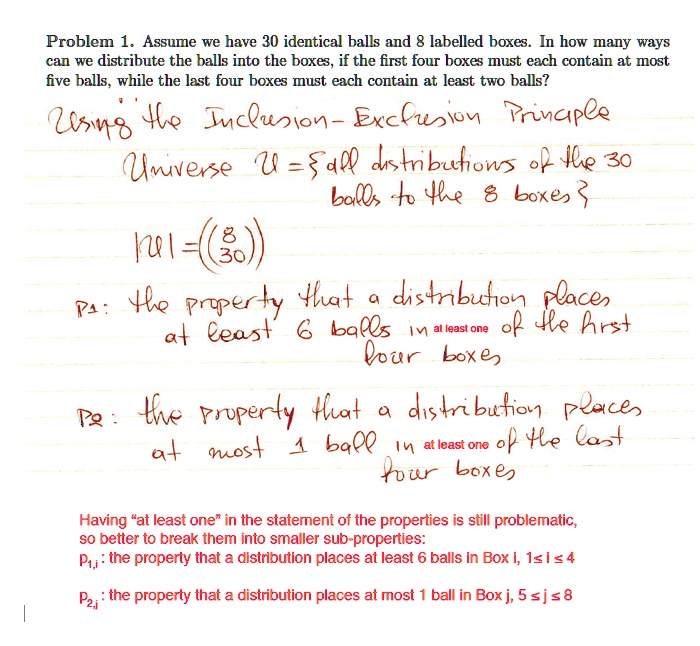 Problem 1. Assume we have 30 identical balls and 8 labelled boxes. In how many ways
can we distribute the balls into the boxes, if the first four boxes must each contain at most
five balls, while the last four boxes must each contain at least two balls?
Using the Inclusion-Exclusion Principle
Universe U = {all distributions of the 30
balls to the 8 boxes}
|U| = ((8 30))
P1: the property that a distribution places
at least 6 balls in at least one of the first
four boxes
P2: the property that a distribution places
at most 1 ball in at least one of the last
four boxes
Having "at least one" in the statement of the properties is still problematic,
so better to break them into smaller sub-properties:
P1,i: the property that a distribution places at least 6 balls in Box i, 1≤i≤4
P2,j: the property that a distribution places at most 1 ball in Box j, 5≤j≤8